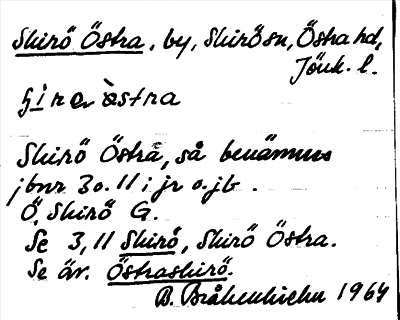 Skirö Östra, by, Skirö sn, Östra hd,
Jönk. l.
Skirö Östra, så benämnes
jbnr 3 o. 11 i jr o. jb.
Ö. Skirö G.
Se 3, 11 Skirö, Skirö Östra.
Se äv. Östraskirö.
B. 1964